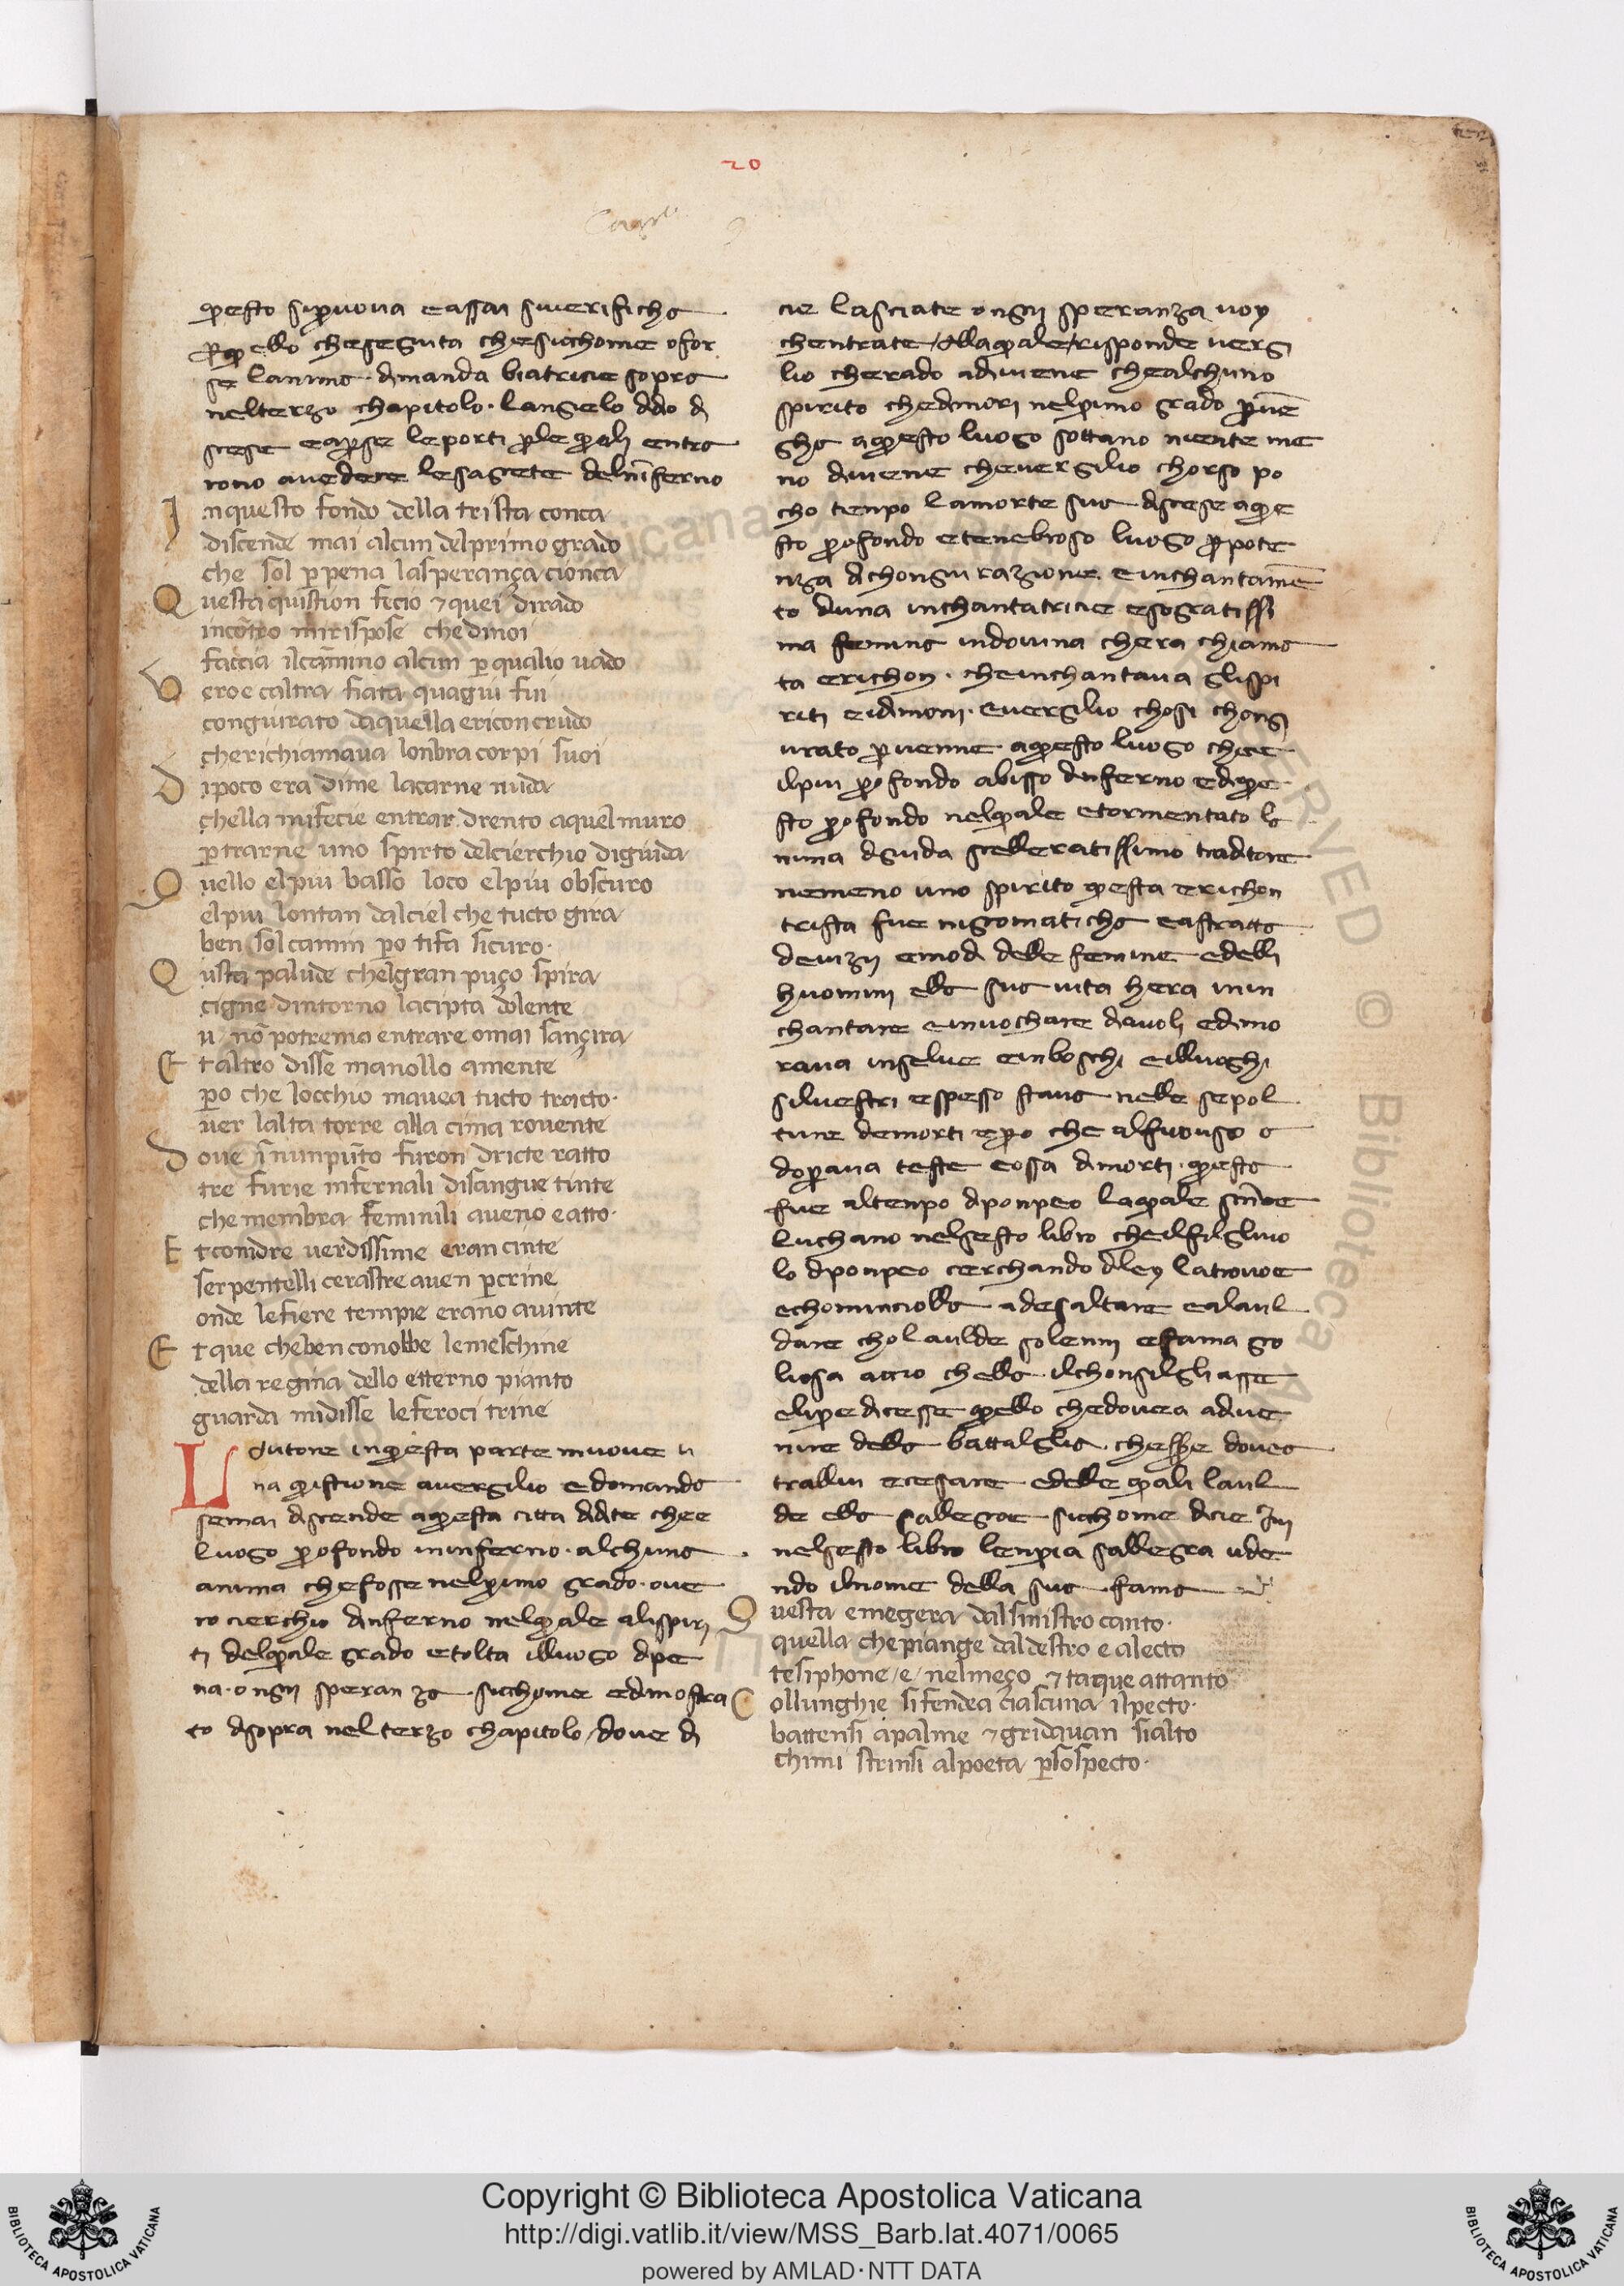 20
questo sipruova eassai siuerificha
perquello chesesguita chesicchome ofor
se lanima dimanda biatricie sopra
nelterzo chapitolo. langelo didio di
scese eaperse leporti perle quali entra
rono auedere lesagrete delniferno
In questo fondo della trista conca
discende mai alcun delprimo grado
che sol per pena lasperança cionca
Q uesta quistion fecio ⁊ quei dirado
incōtro mirispose chedinoi
faccia ilcammino alcun per qualio uado
V ero e caltra fiata quagiu fui
congiurato daquella ericon crudo
cherichiamaua lonbra corpi suoi
D ipoco era dime lacarne nuda
chella mifecie entrar drento aquel muro
per trarne uno spirto delcierchio digiuda
Q uello elpiu basso loco elpiu obscuro
elpiu lontan dalciel che tucto gira
ben sol camin pero tifa sicuro.
Q usta palude chelgran puço spira
cigne dintorno lacipta dolente
u nō potremo entrare omai sançira
E t altro disse manollo amente
pero che locchio mauea tucto tracto.
uer lalta torre alla cima rouente
D oue ī nunpūto furon dricte ratto
tre furie infernali disangue tinte
che membra feminili aueno e atto.
E t conidre uerdissime eran cinte
serpentelli cerastre auen per crine
onde lefiere tempie erano auinte
E t que cheben conobbe lemeschine
della regina dello etterno pianto
guarda midisse leferoci trine
L autore inquesta parte muoue u
na quistione auergilio edomanda
semai discende aquesta citta didite chee
luogo profondo ininferno. alchuna
anima chefosse nelprimo grado. oue
ro cierchio dinferno nelquale alispiri
ti delquale grado etolta illuogo dipe
na. ongni speranza. sicchome edimostra
to disopra nel terzo chapitolo / doue di
cie lasciate ongni speranza uoy
chentrate / Allaquale / risponde uergi
lio cherado adiuene chealchuno
spirito chedimori nelprimo grado peruē
gha aquesto luogo sottano niente me
no diuiene cheuergilio chorso po
cho tienpo lamorte sua discese aque
sto profondo etenebroso luogo per pote
nza dichongiurazione. einchantamē
to duna inchantatricie esograti ssi
ma femina indouina chera chiama
ta erichon. cheinchantaua glispi
riti eidimoni. euergilio chosi chongi
urato peruenne aquesto luogo chee
ilpiu profondo abisso dinferno edique
sto profondo nelquale etormentato la
nima diguida scelleratissimo traditore
nemeno uno spirito questa erichon
trista fue nigromaticha eastratta
deuizii emodi delle femine edelli
huomini ella sua uita hera inin
chantare einuochare diauoli edimo
raua inselue einboschi eilluoghi
siluestri espesso staua nelle sepol
ture demorti epero che alsuouso o
doperaua teste eossa dimorti. questa
fue altenpo diponpeo laquale scriue
luchano nelsesto libro cheilfilgliuo
lo diponpeo cerchando diley latruoue
echominciolla adesaltare ealaul
dare chol aulde solenni efama glo
liosa accio chella ilchonsilgliasse
eliperdicesse quello chedouera adiue
nire della battalglia. chessere douea
trallui ecesare edelle quali laul
de ella sallegroe sicchome dicie iui
nelsesto libro lenpia sallegra ude
ndo ilnome della sua fama
Q uesta emegera dalsinistro canto.
quella chepiange daldestro e alecto
tesiphone / e / nelmeço ⁊ taque attanto
C ollunghie sifendea ciascuna ilpecto.
battensi apalme ⁊ gridauan sialto
chimi strinsi alpoeta persospecto.
Copyright © Biblioteca Apostolica Vaticana
http://digi.vatlib.it/view/MSS_Barb.lat.4071/0065
powered by AMLAD·NTT DATA
BIBLIOTECA APOSTOLICA VATICANA
BIBLIOTECA APOSTOLICA VATICANA